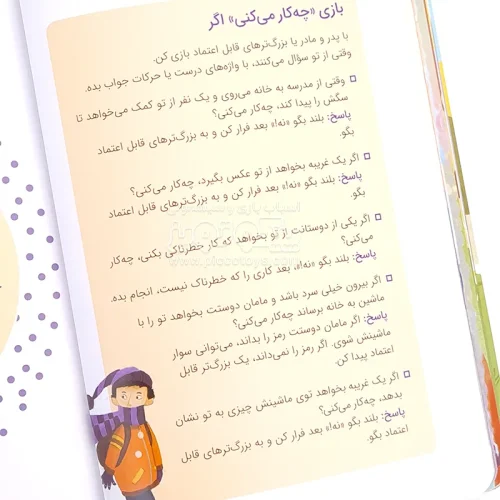 بازی «چه‌کار می‌کنی» اگر
با پدر و مادر یا بزرگ‌ترهای قابل اعتماد بازی کن.
وقتی از تو سؤال می‌کنند، با واژه‌های درست یا حرکات جواب بده.
وقتی از مدرسه به خانه می‌روی و یک نفر از تو کمک می‌خواهد تا
سگش را پیدا کند، چه‌کار می‌کنی؟
پاسخ: بلند بگو «نه!» بعد فرار کن و به بزرگ‌ترهای قابل اعتماد
بگو.
اگر یک غریبه بخواهد از تو عکس بگیرد، چه‌کار می‌کنی؟
پاسخ: بلند بگو «نه!» بعد فرار کن و به بزرگ‌ترهای قابل اعتماد
بگو.
اگر یکی از دوستانت از تو بخواهد که کار خطرناکی بکنی، چه‌کار
می‌کنی؟
پاسخ: بلند بگو «نه!»، بعد کاری را که خطرناک نیست، انجام بده.
اگر بیرون خیلی سرد باشد و مامان دوستت بخواهد تو را با
ماشین به خانه برساند چه‌کار می‌کنی؟
پاسخ: اگر مامان دوستت رمز را بداند، می‌توانی سوار
ماشینش شوی. اگر رمز را نمی‌داند، یک بزرگ‌تر قابل
اعتماد پیدا کن.
اگر یک غریبه بخواهد توی ماشینش چیزی به تو نشان
بدهد، چه‌کار می‌کنی؟
پاسخ: بلند بگو «نه!» بعد فرار کن و به بزرگ‌ترهای قابل
اعتماد بگو.